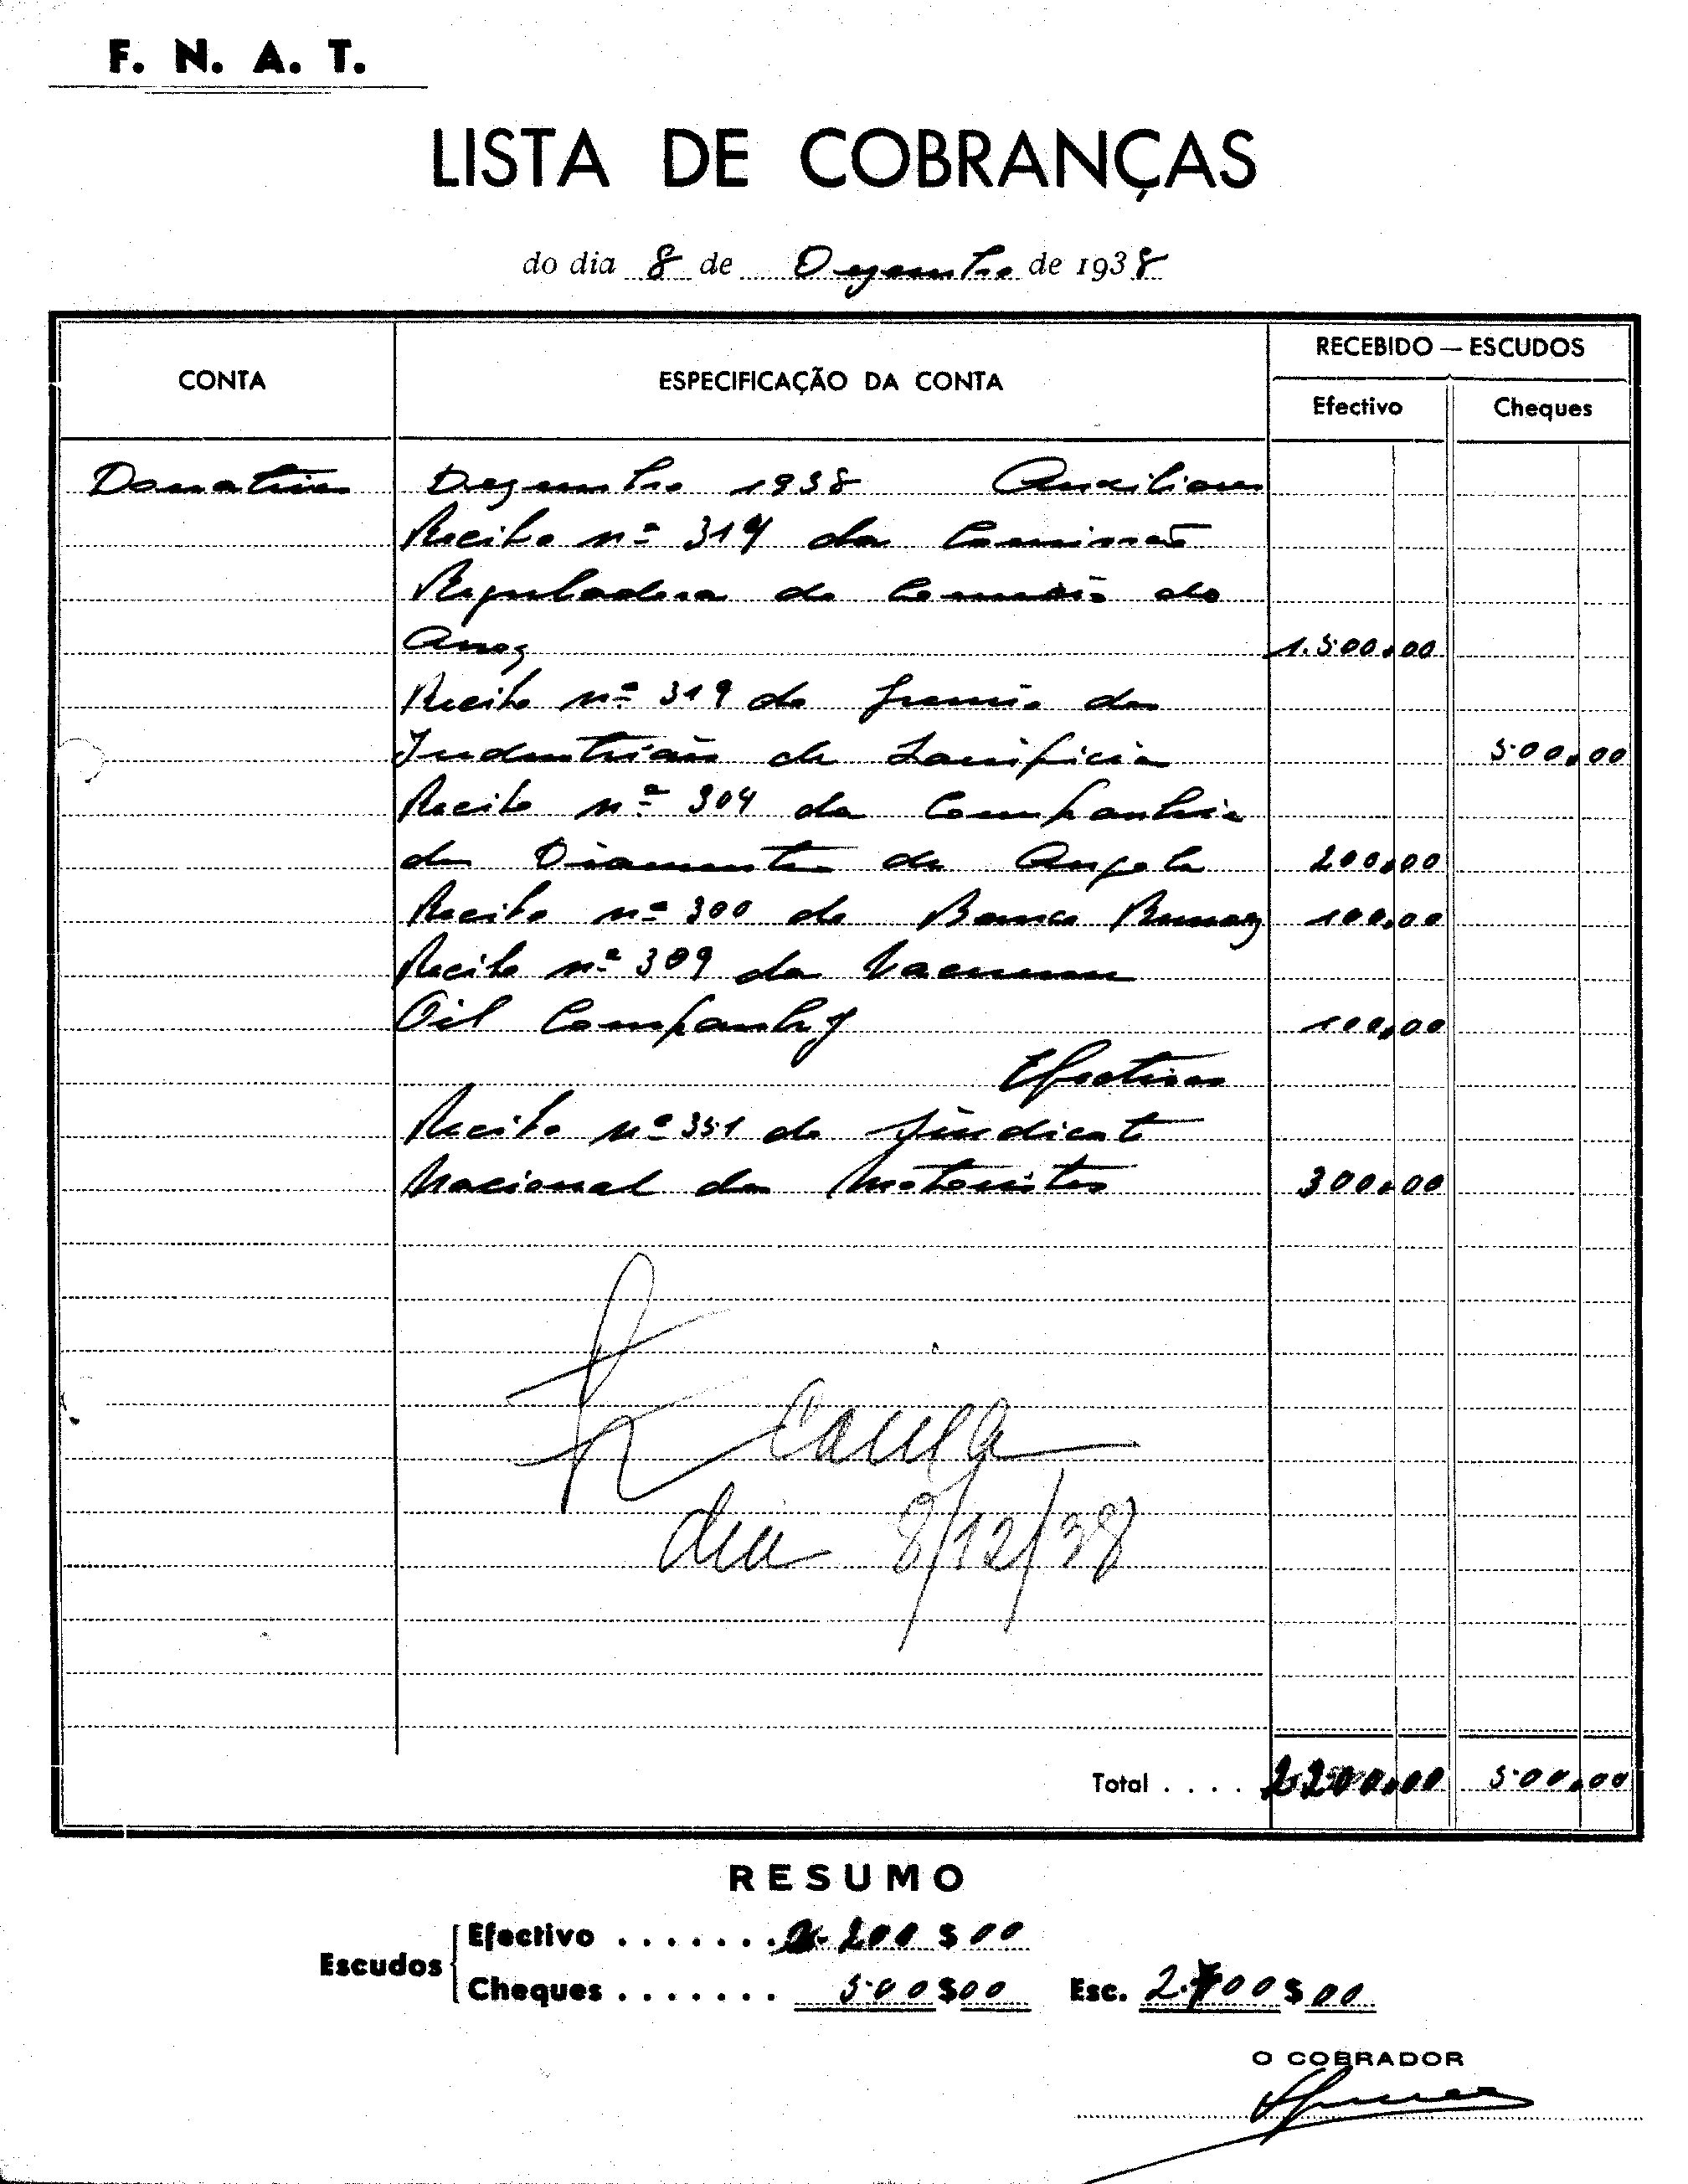 F. N. A. T.
LISTA DE COBRANÇAS
do dia 8 de Dezembro de 1938
CONTA
ESPECIFICAÇÃO DA CONTA
RECEBIDO — ESCUDOS
Efectivo
Cheques
Donativos Dezembro 1938 Auxiliares
Recibo nº 314 da Comissão
Reguladora do Comércio do
Arroz 1.500,00
Recibo nº 319 do Gremio dos
Industriais de Lanificios 500,00
Recibo nº 304 da Companhia
de Diamantes de Angola 200,00
Recibo nº 300 do Banco Burnay 100,00
Recibo nº 309 da Vacuum
Oil Company 100,00
Efectivos
Recibo nº 351 do Sindicato
Nacional dos Motoristas 300,00
Caixa
dia 8/12/38
Total . . . . 2.200,00 500,00
RESUMO
Escudos
Efectivo . . . . . . . 2.200$00
Cheques . . . . . . . 500$00 Esc. 2.700$00
O COBRADOR